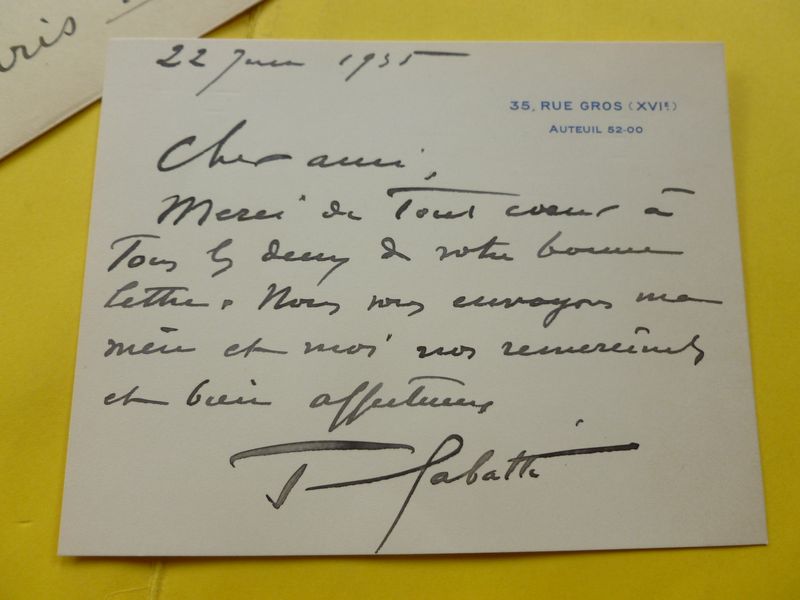 ris
22 Juin 1935
35, RUE GROS (XVIE)
AUTEUIL 52-00
Cher ami,
Merci de Tout coeur à
Tous les deux de votre bonne
lettre. Nous vous envoyons ma
mère et moi nos remerciements
et bien affectueux